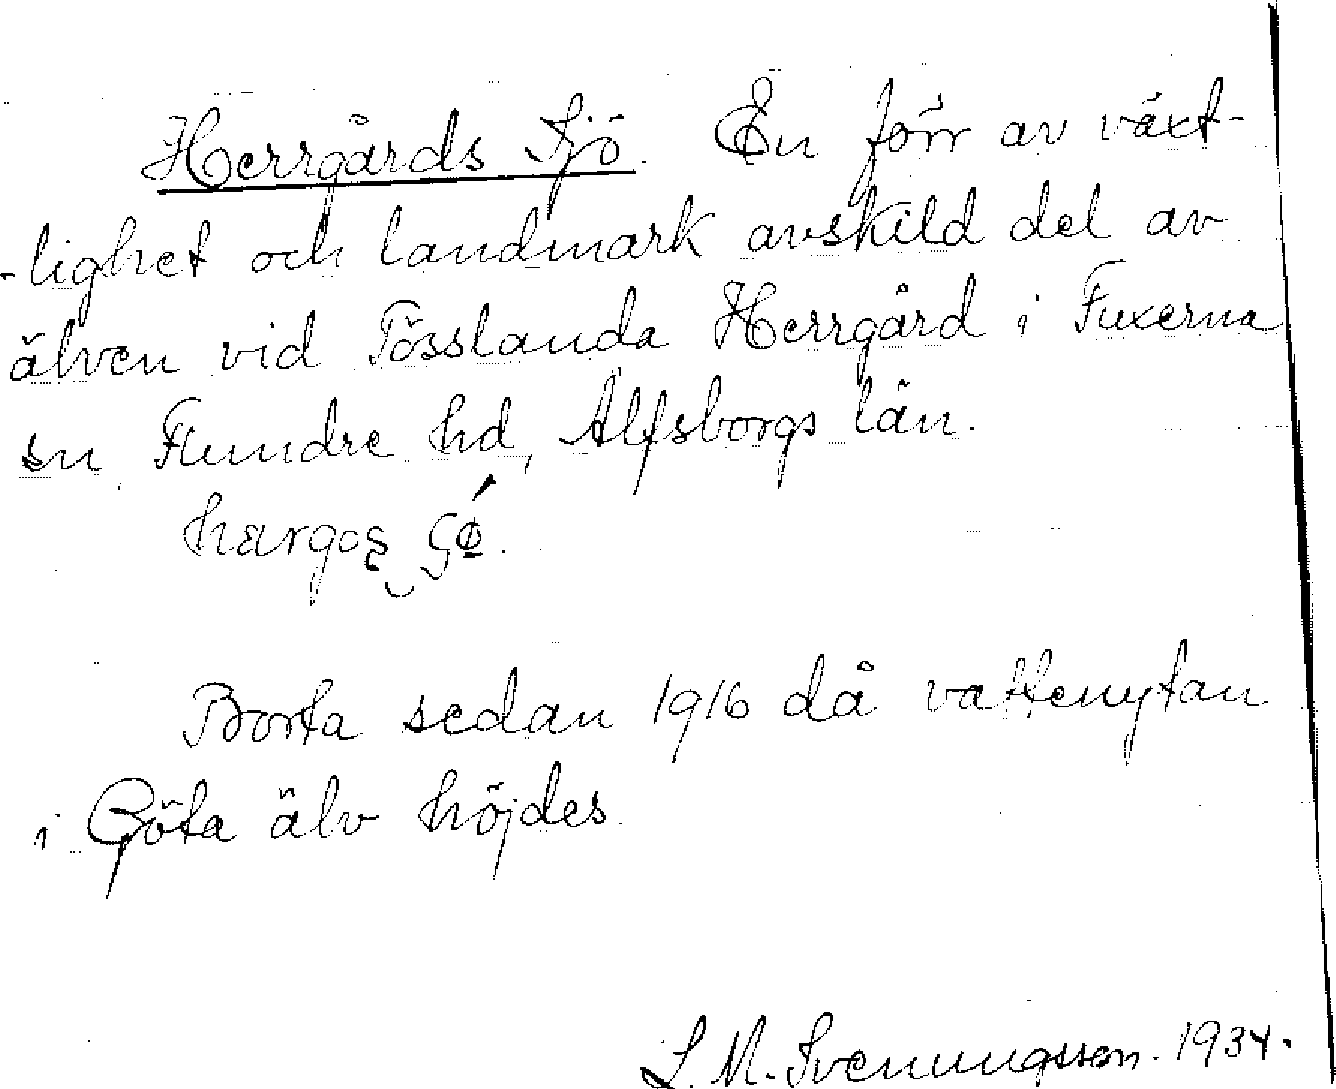 Herrgårds Sjö. En förr av växt-
-lighet och landmark avskild del av
älven vid Tösslanda Herrgård i Fuxerna
sn Flundre hd, Älfsborgs län.
Borta sedan 1916 då vattenytan
i Göta älv höjdes
S. M. Svenungsson. 1934.